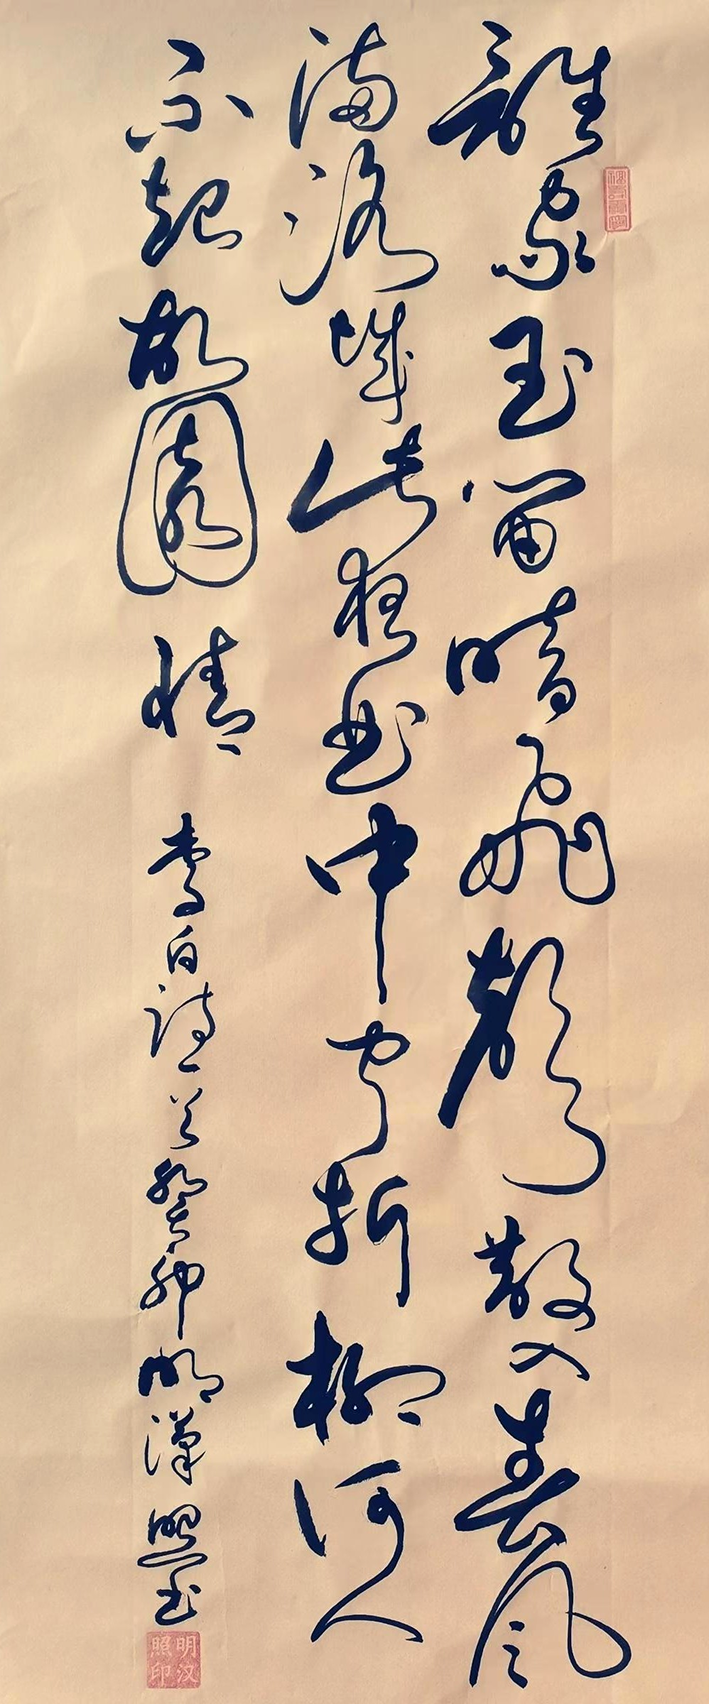 誰家玉笛暗飛聲散入春風
滿洛城此夜曲中聞折柳何人
不起故園情
李白詩一首癸卯明漢照书
明汉照印